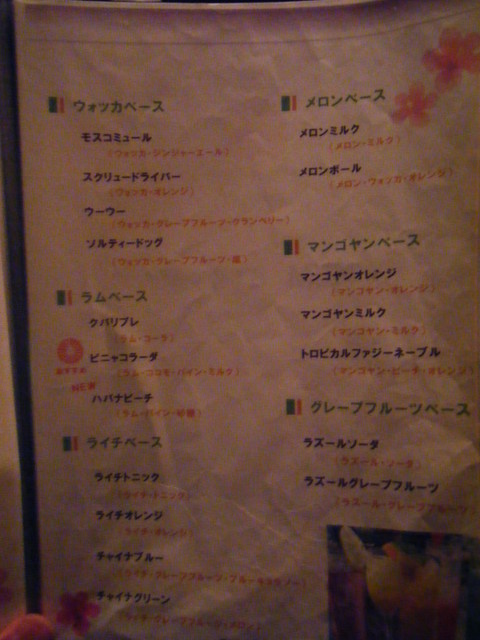 ウォッカベース
モスコミュール
(ウォッカ・ジンジャーエール)
スクリュードライバー
(ウォッカ・オレンジ)
ウーウー
(ウォッカ・グレープフルーツ・クランベリー)
ソルティードッグ
(ウォッカ・グレープフルーツ・塩)
ラムベース
クバリブレ
(ラム・コーラ)
おすすめ
ピニャコラーダ
(ラム・ココモ・パイン・ミルク)
NEW
ハバナビーチ
(ラム・パイン・砂糖)
ライチベース
ライチトニック
(ライチ・トニック)
ライチオレンジ
(ライチ・オレンジ)
チャイナブルー
(ライチ・グレープフルーツ・ブルーキュラソー)
チャイナグリーン
(ライチ・グレープフルーツ・メロン)
メロンベース
メロンミルク
(メロン・ミルク)
メロンボール
(メロン・ウォッカ・オレンジ)
マンゴヤンベース
マンゴヤンオレンジ
(マンゴヤン・オレンジ)
マンゴヤンミルク
(マンゴヤン・ミルク)
トロピカルファジーネーブル
(マンゴヤン・ピーチ・オレンジ)
グレープフルーツベース
ラズールソーダ
(ラズール・ソーダ)
ラズールグレープフルーツ
(ラズール・グレープフルーツ)